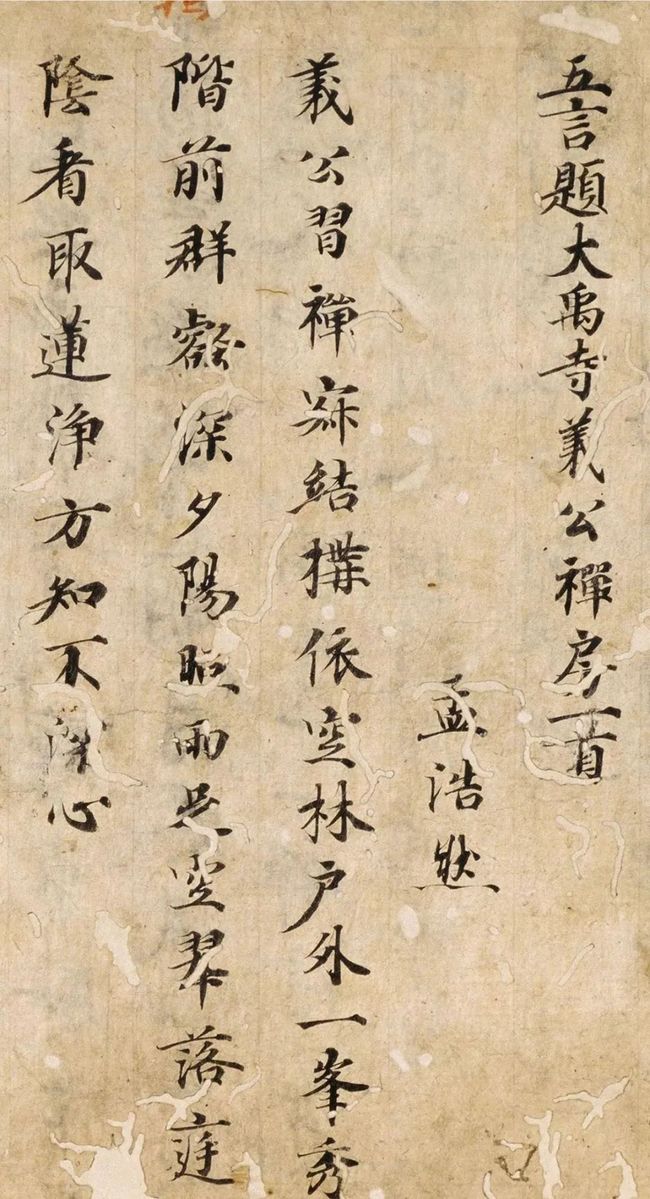 五言題大禹寺義公禪房一首
孟浩然
義公習禪寂結搆依空林户外一峯秀
階前群壑深夕陽照雨足空翠落庭
陰看取蓮淨方知不染心